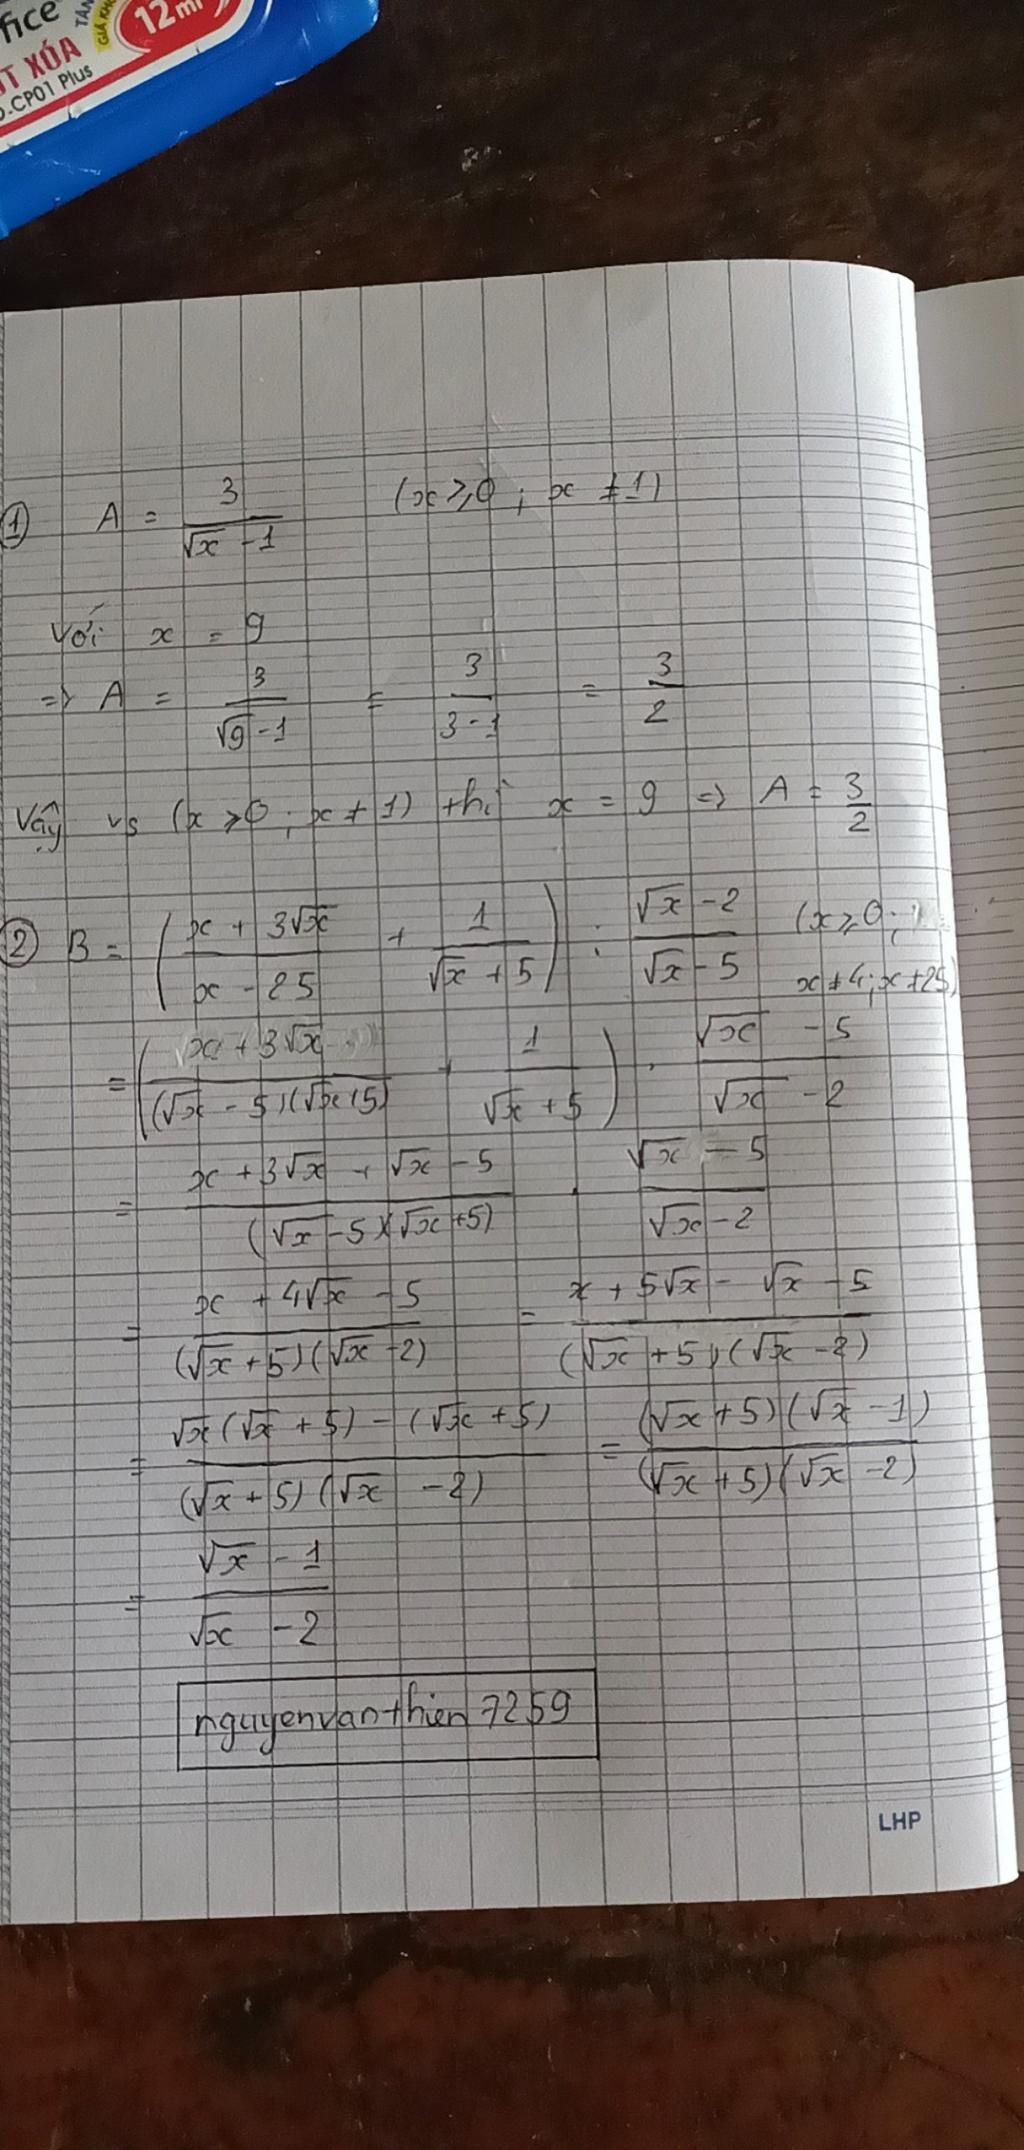 fice
TÂN
GIÁ KH
12ml
T XÓA
-CP01 Plus
① A = 3/(√x - 1) (x ≥ 0 ; x ≠ 1)
Với x = 9
=> A = 3/(√9 - 1) = 3/(3 - 1) = 3/2
Vậy vs (x ≥ 0 ; x ≠ 1) thì x = 9 => A = 3/2
② B = ((x + 3√x)/(x - 25) + 1/(√x + 5)) : (√x - 2)/(√x - 5) (x ≥ 0 ;
x ≠ 4 ; x ≠ 25)
= ((x + 3√x)/((√x - 5)(√x + 5)) + 1/(√x + 5)) . (√x - 5)/(√x - 2)
= (x + 3√x + √x - 5)/((√x - 5)(√x + 5)) . (√x - 5)/(√x - 2)
= (x + 4√x - 5)/((√x + 5)(√x - 2)) = (x + 5√x - √x - 5)/((√x + 5)(√x - 2))
= (√x(√x + 5) - (√x + 5))/((√x + 5)(√x - 2)) = ((√x + 5)(√x - 1))/((√x + 5)(√x - 2))
= (√x - 1)/(√x - 2)
nguyenvanthien7259
LHP